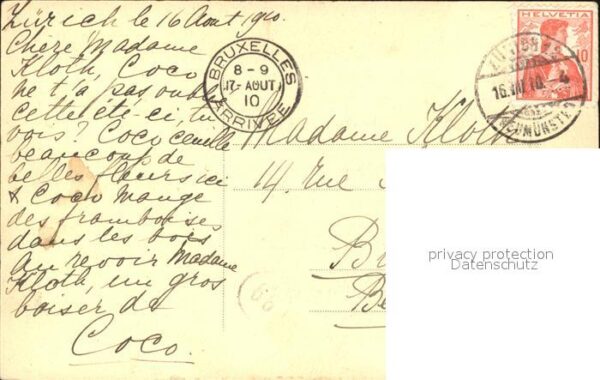 Zürich le 16 Aout 1910.
Chère Madame
Kloth, Coco
ne t'a pas oublié
cette été-ci, tu
vois? Coco cueille
beaucoup de
belles fleurs ici
& Coco mange
des framboises
dans les bois
Au revoir Madame
Kloth, un gros
baiser de
Coco.
BRUXELLES
8-9
17-AOUT
10
ARRIVEE
HELVETIA
10
16.VIII.10. 4
NEUMÜNSTER
Madame Kloth
14, Rue
privacy protection
Datenschutz